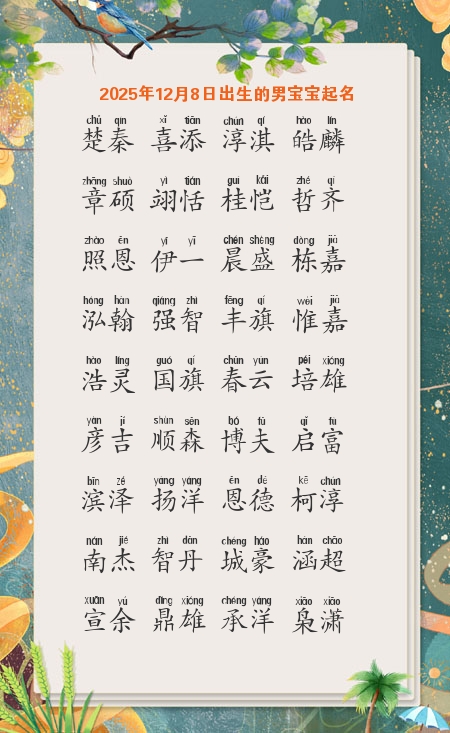 2025年12月8日出生的男宝宝起名
chǔ qín xǐ tiān chún qí hào lín
楚秦 喜添 淳淇 皓麟
zhāng shuò yì tián guì kǎi zhé qí
章硕 翊恬 桂恺 哲齐
zhào ēn yī yī chén shèng dòng jiā
照恩 伊一 晨盛 栋嘉
hóng hàn qiáng zhì fēng qí wéi jiā
泓翰 强智 丰旗 惟嘉
hào líng guó qí chūn yún péi xióng
浩灵 国旗 春云 培雄
yàn jí shùn sēn bó fū qǐ fù
彦吉 顺森 博夫 启富
bīn zé yáng yáng ēn dé kē chún
滨泽 扬洋 恩德 柯淳
nán jié zhì dān chéng háo hán chāo
南杰 智丹 城豪 涵超
xuān yú dǐng xióng chéng yáng xiāo xiāo
宣余 鼎雄 承洋 枭潇